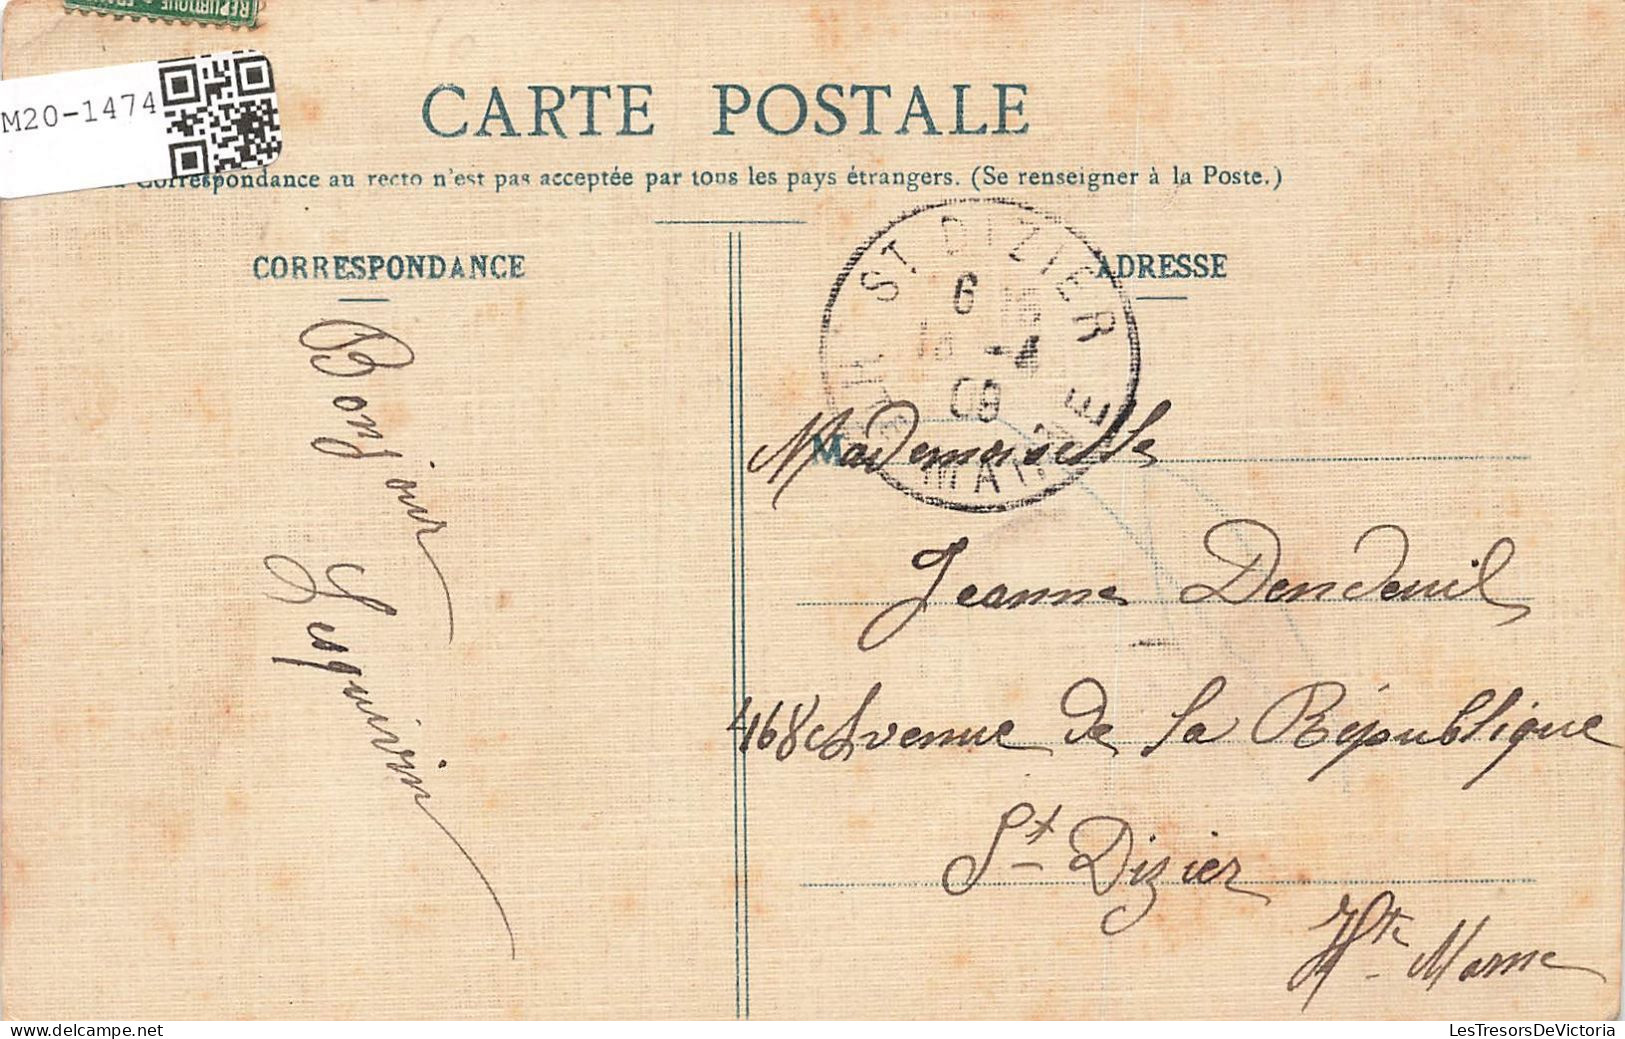 RÉPUBLIQUE
M20-1474
CARTE POSTALE
Correspondance au recto n'est pas acceptée par tous les pays étrangers. (Se renseigner à la Poste.)
CORRESPONDANCE
ADRESSE
ST DIZIER
6
-4
09
HTE MARNE
Bonjour
M
Mademoiselle
Jeanne Dendeuil
468 Avenue de la République
St Dizier
Hte Marne
LesTresorsDeVictoria
www.delcampe.net